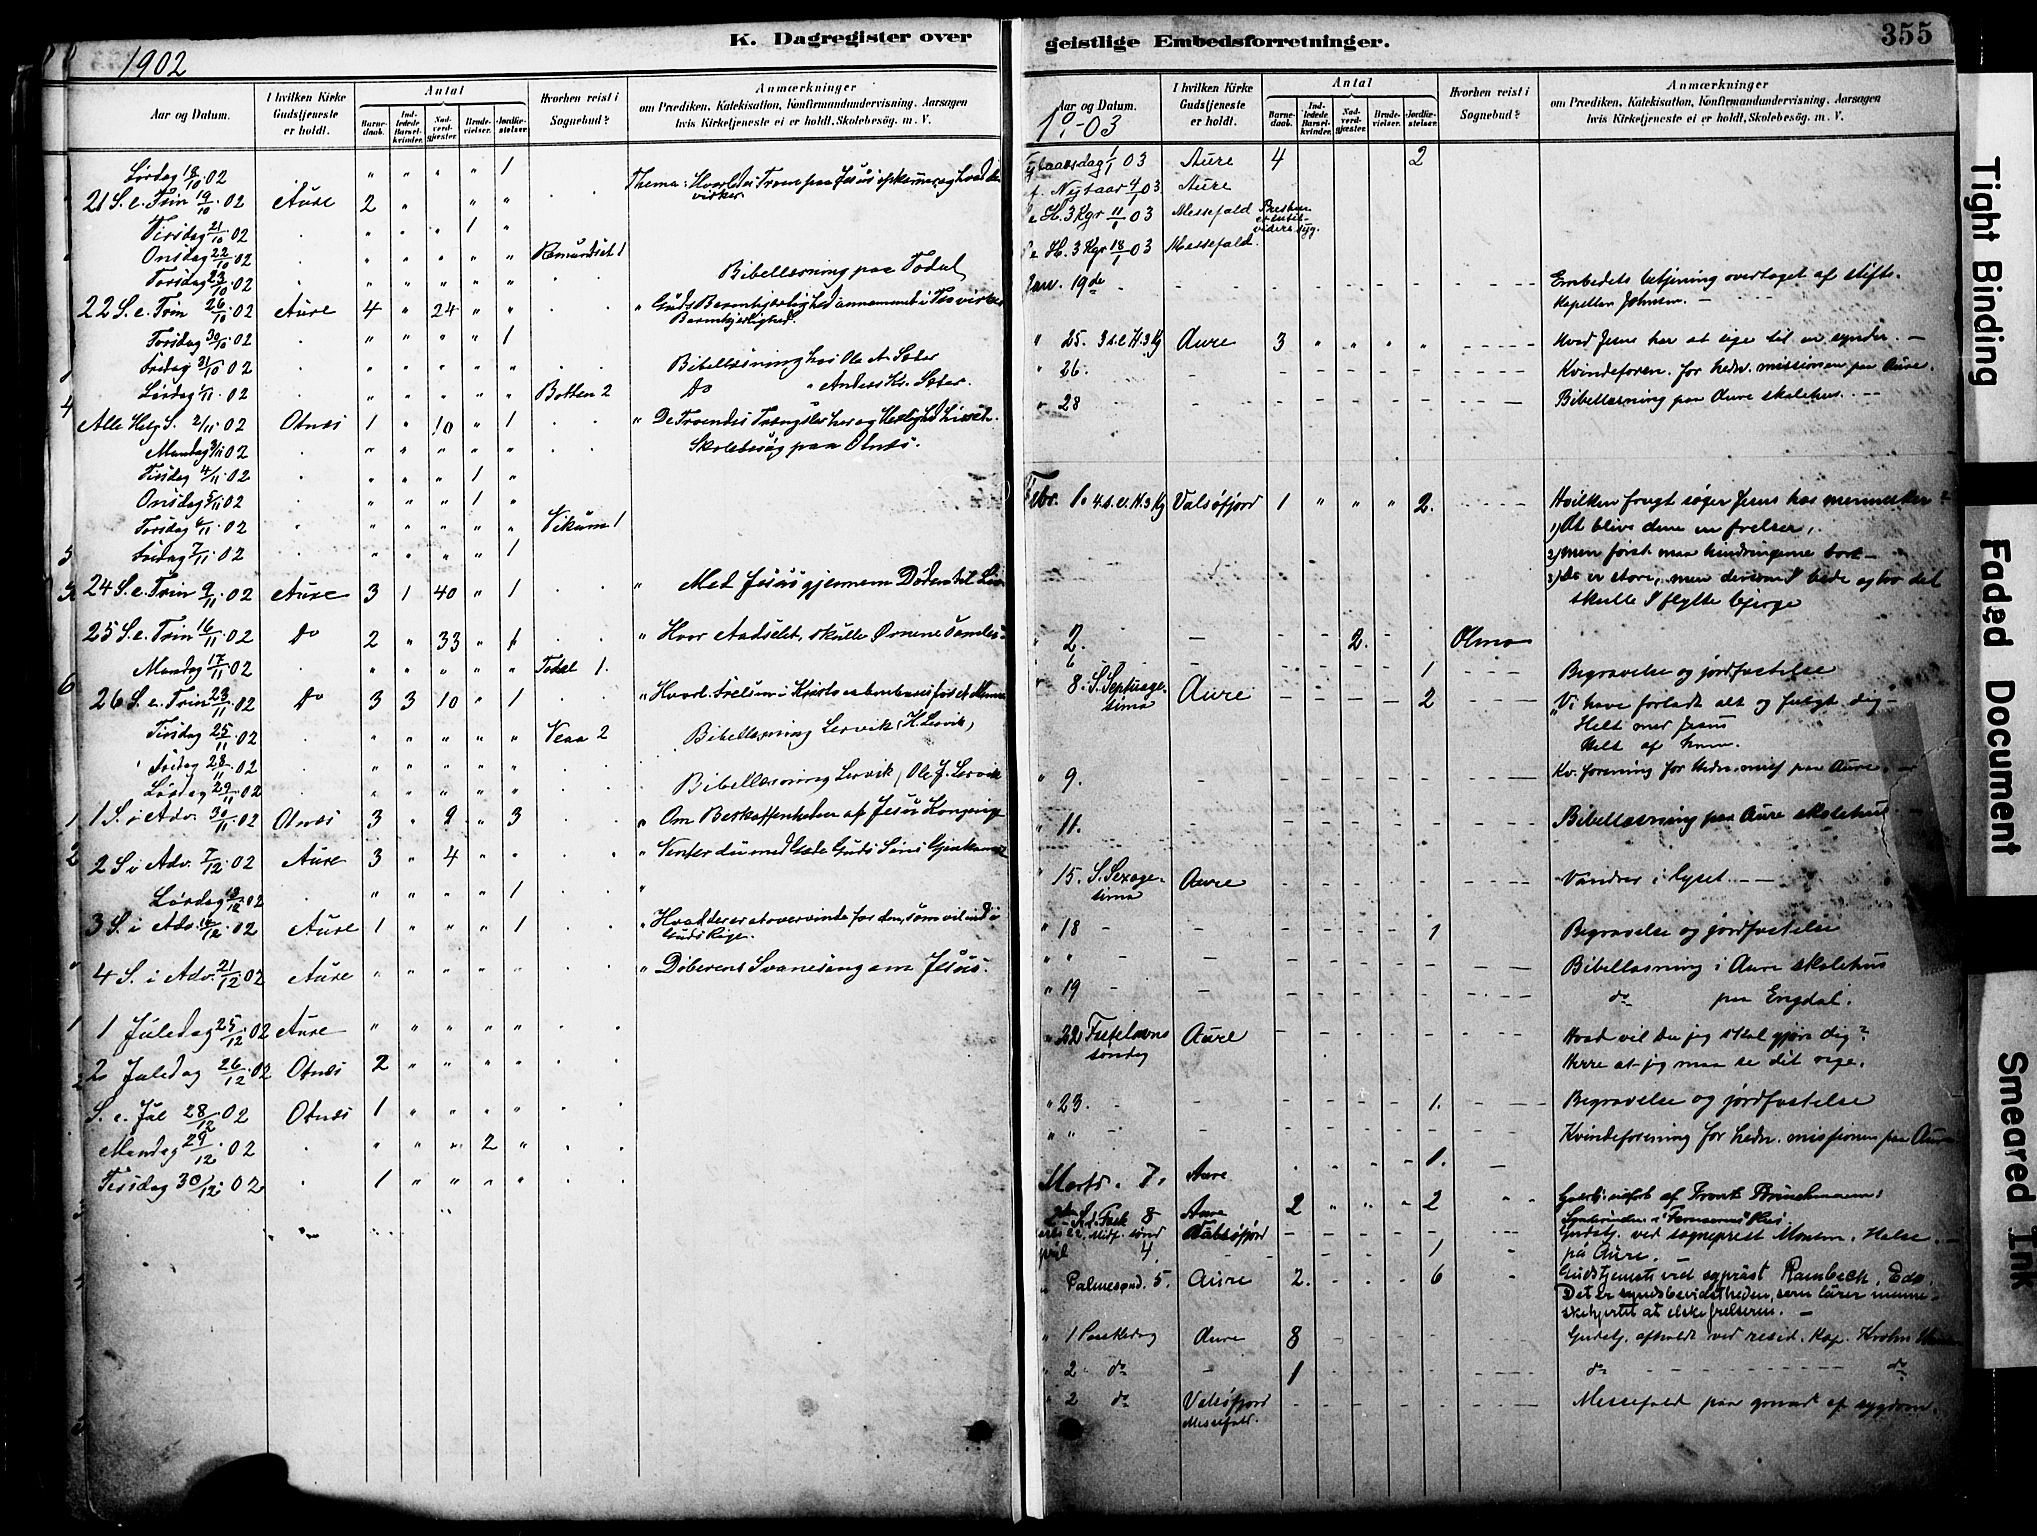 K. Dagregister over
1902
Aar og Datum.
I hvilken Kirke Gudstjeneste er holdt.
Antal
Barnedaab.
Indledede Barselkvinder.
Nadverdgjester.
Brudevielser.
Jordfæstelser.
Hvorhen reist i Sognebud?
Anmærkninger
om Prædiken, Katekisation, Konfirmandundervisning, Aarsagen
hvis Kirketjeneste ei er holdt, Skolebesøg. m. V.
Lørdag 18/10 02 " " " " 1
21 S. e. Trin 19/10 02 Aure 2 " " " Thema: Hvorledes Troen paa Jesus opkommer og hvad den
virker.
Tirsdag 21/10 02 " " " 1 "
Onsdag 22/10 02 " " " " " Romundset 1
Torsdag 23/10 02 " " " " " Bibellæsning paa Todal
22 S. e. Trin 26/10 02 Aure 4 " 24 " " " Guds Barmhjertighed annammet i Tro virker
Barmhjertighed.
Torsdag 30/10 02 " " " " 1
Fredag 31/10 02 " " " " " Bibellæsning hos Ole A. Sæter
Lørdag 1/11 02 " " " " " Botten 2 Do " Anders Kr. Sæter.
Alle Helg S. 2/11 02 Otnes 1 " 10 " 1 " De Troendes Trængsler her og Herlighed hisset.
Mandag 3/11 02 " " " " " Skolebesøg paa Otnes.
Tirsdag 4/11 02 " " " 1
Onsdag 5/11 02 " " " 1 "
Torsdag 6/11 02 " " " " " Vikum 1
Fredag 7/11 02 " " " " 1
24 S. e. Trin 9/11 02 Aure 3 1 40 " 1 " Med Jesus gjennem Døden til Livet
25 S. e. Trin 16/11 02 Do 2 " 33 " 1 " Hvor Aadselet, skulle Ørnene samles
Mandag 17/11 02 " " " " " Todal 1.
26 S. e. Trin 23/11 02 Do 3 3 10 " 1
Tirsdag 25/11 02 " " " " " Veaa 2 Bibellæsning Lervik (K. Lervik)
Fredag 28/11 02 " " " " "
Lørdag 29/11 02 " " " " " Bibellæsning Lervik, Ole J. Lervik
1 S. i Adv. 30/11 02 Otnes 3 " 9 " 3 " Om Beskaffenheden af Jesus Kongerige
2 S. i Adv. 7/12 02 Aure 3 " 4 " " " Venter du med Glæde Guds Søns Gjenkomst
Lørdag 13/12 02 " " " " 1 "
3 S. i Adv. 14/12 02 Aure 1 " " " 1 " Hvad der er at overvinde for den, som vil ind i
Guds Rige.
4 S. i Adv. 21/12 02 Aure " " " " " " Døberens Svanesang om Jesus.
1 Juledag 25/12 02 Aure " " " " "
2 Juledag 26/12 02 Otnes 2 " " " "
S. e. Jul 28/12 02 Otnes 1 " " " "
Mandag 29/12 02 " " " 2 "
Tirsdag 30/12 02 1 " " " "
geistlige Embedsforretninger.
355
1903
Aar og Datum.
I hvilken Kirke Gudstjeneste er holdt.
Antal
Barnedaab.
Indledede Barselkvinder.
Nadverdgjester.
Brudevielser.
Jordfæstelser.
Hvorhen reist i Sognebud?
Anmærkninger
om Prædiken, Katekisation, Konfirmandundervisning, Aarsagen
hvis Kirketjeneste ei er holdt, Skolebesøg, m. V.
Nytaarsdag 1/1 03 Aure 4 2
S. e. Nytaar 4/1 03 Aure
S. e. H. 3 Kgr 11/1 03 Messefald
S. e. H. 3 Kgr 18/1 03 Messefald.
Jan. 19de - - - - - - Embedets betjening overtaget af stifts-
kapellan Johnsen. -
" 25. 3 s. e. H. 3 Kg Aure 3 " " " " - - - Hvad Jesus har at sige til en synder. -
" 26. - - - - - Kvindeforen. for hedn. missionen paa Aure.
" 28 - - - - - Bibellæsning paa Aure skolehus. - -
Febr. 1. 4. s. e. H. 3 Kg Valsøfjord 1 " " " 2. - - - Hvilken frugt søger Jesus hos mennesker?
1) At blive dem en frelser,
2) men først maa hindringerne bort -
3) De er store, men dersom I bede og tro det
skulle I flytte bjerge
" 2. - - - 2. - Olmo
" 6 - - - - - 1 - - - Begravelse og jordfæstelse
" 8. S. Septuage-
sima Aure - - - - 2 - - - "Vi have forladt alt og fulgt dig -
Helt med Jesus
Helt af ham.
" 9. - - - - - - Kv. forening for hedn. miss paa Aure. -
" 11. - - - - - - Bibellæsning paa Aure skolehus. -
" 15. S. Sexage-
sima Aure - - - - - Vandrer i lyset. - -
" 18 - - - - - - 1 - - Begravelse og jordfæstelse
" " - - - - - - Bibellæsning i Aure skolehus
" 19 - - - - - - do paa Engdal.
" 22 Fastelavns
søndag Aure - - - - - Hvad vil du jeg skal gjøre dig?
Herre at jeg maa se dit rige.
" 23. - - - - - 1. - - Begravelse og jordfæstelse
" " - - - - - Kvindeforening for hedn. missionen paa Aure
Marts. 7. Aure " " " " 1. -
2den S. i Fast 8 Aure 2 " " " 2
Valsøfjord - - - - - Gudstj. ved sogneprest
4. - - - - 1 på Aure. -
" Palmesønd. 5. Aure 2. - - - 6 " Gudstjeneste ved sogneprest Rambech, Edø.
Det er syndsbevidstheden, som lærer menne-
skehjertet at elske frelseren. -
" 1 Paaskedag Aure 8 - - - - Gudstj. afholdt ved resid. Kap. Krohn
" 2 do - 1 - - - - do - - - do
" 2 do Valsøfjord
Messefald. - - - - - Messefald paa grund af sygdom.
Tight Binding
Faded Document
Smeared Ink